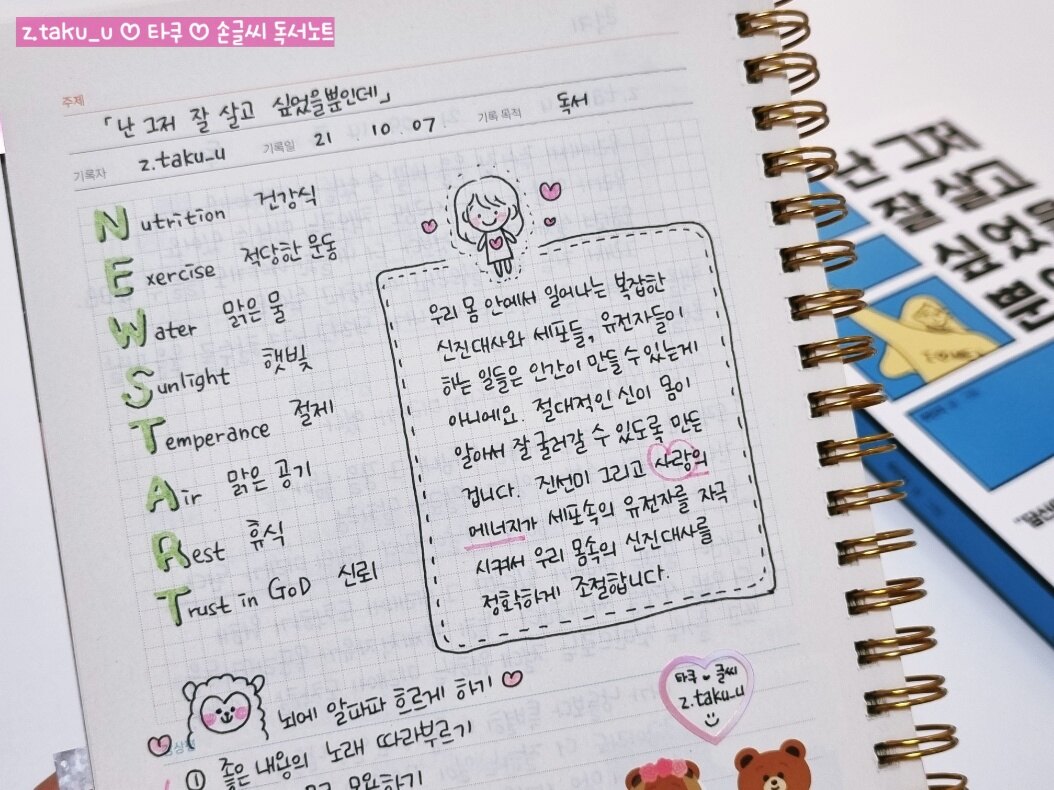 z.taku_u ♡ 타쿠 ♡ 손글씨 독서노트
주제
「난 그저 잘 살고 싶었을뿐인데」
기록자 z.taku_u 기록일 21 . 10 . 07 기록 목적 독서
Nutrition 건강식
Exercise 적당한 운동
Water 맑은 물
Sunlight 햇빛
Temperance 절제
Air 맑은 공기
Rest 휴식
Trust in GOD 신뢰
우리 몸 안에서 일어나는 복잡한
신진대사와 세포들, 유전자들이
하는 일들은 인간이 만들 수 있는게
아니에요. 절대적인 신이 몸이
알아서 잘 굴러갈 수 있도록 만든
겁니다. 진선미 그리고 사랑의
에너지가 세포속의 유전자를 자극
시켜서 우리 몸속의 신진대사를
정확하게 조절합니다.
뇌에 알파파 흐르게 하기 ♡
① 좋은 내용의 노래 따라부르기
타쿠 글씨
z.taku_u